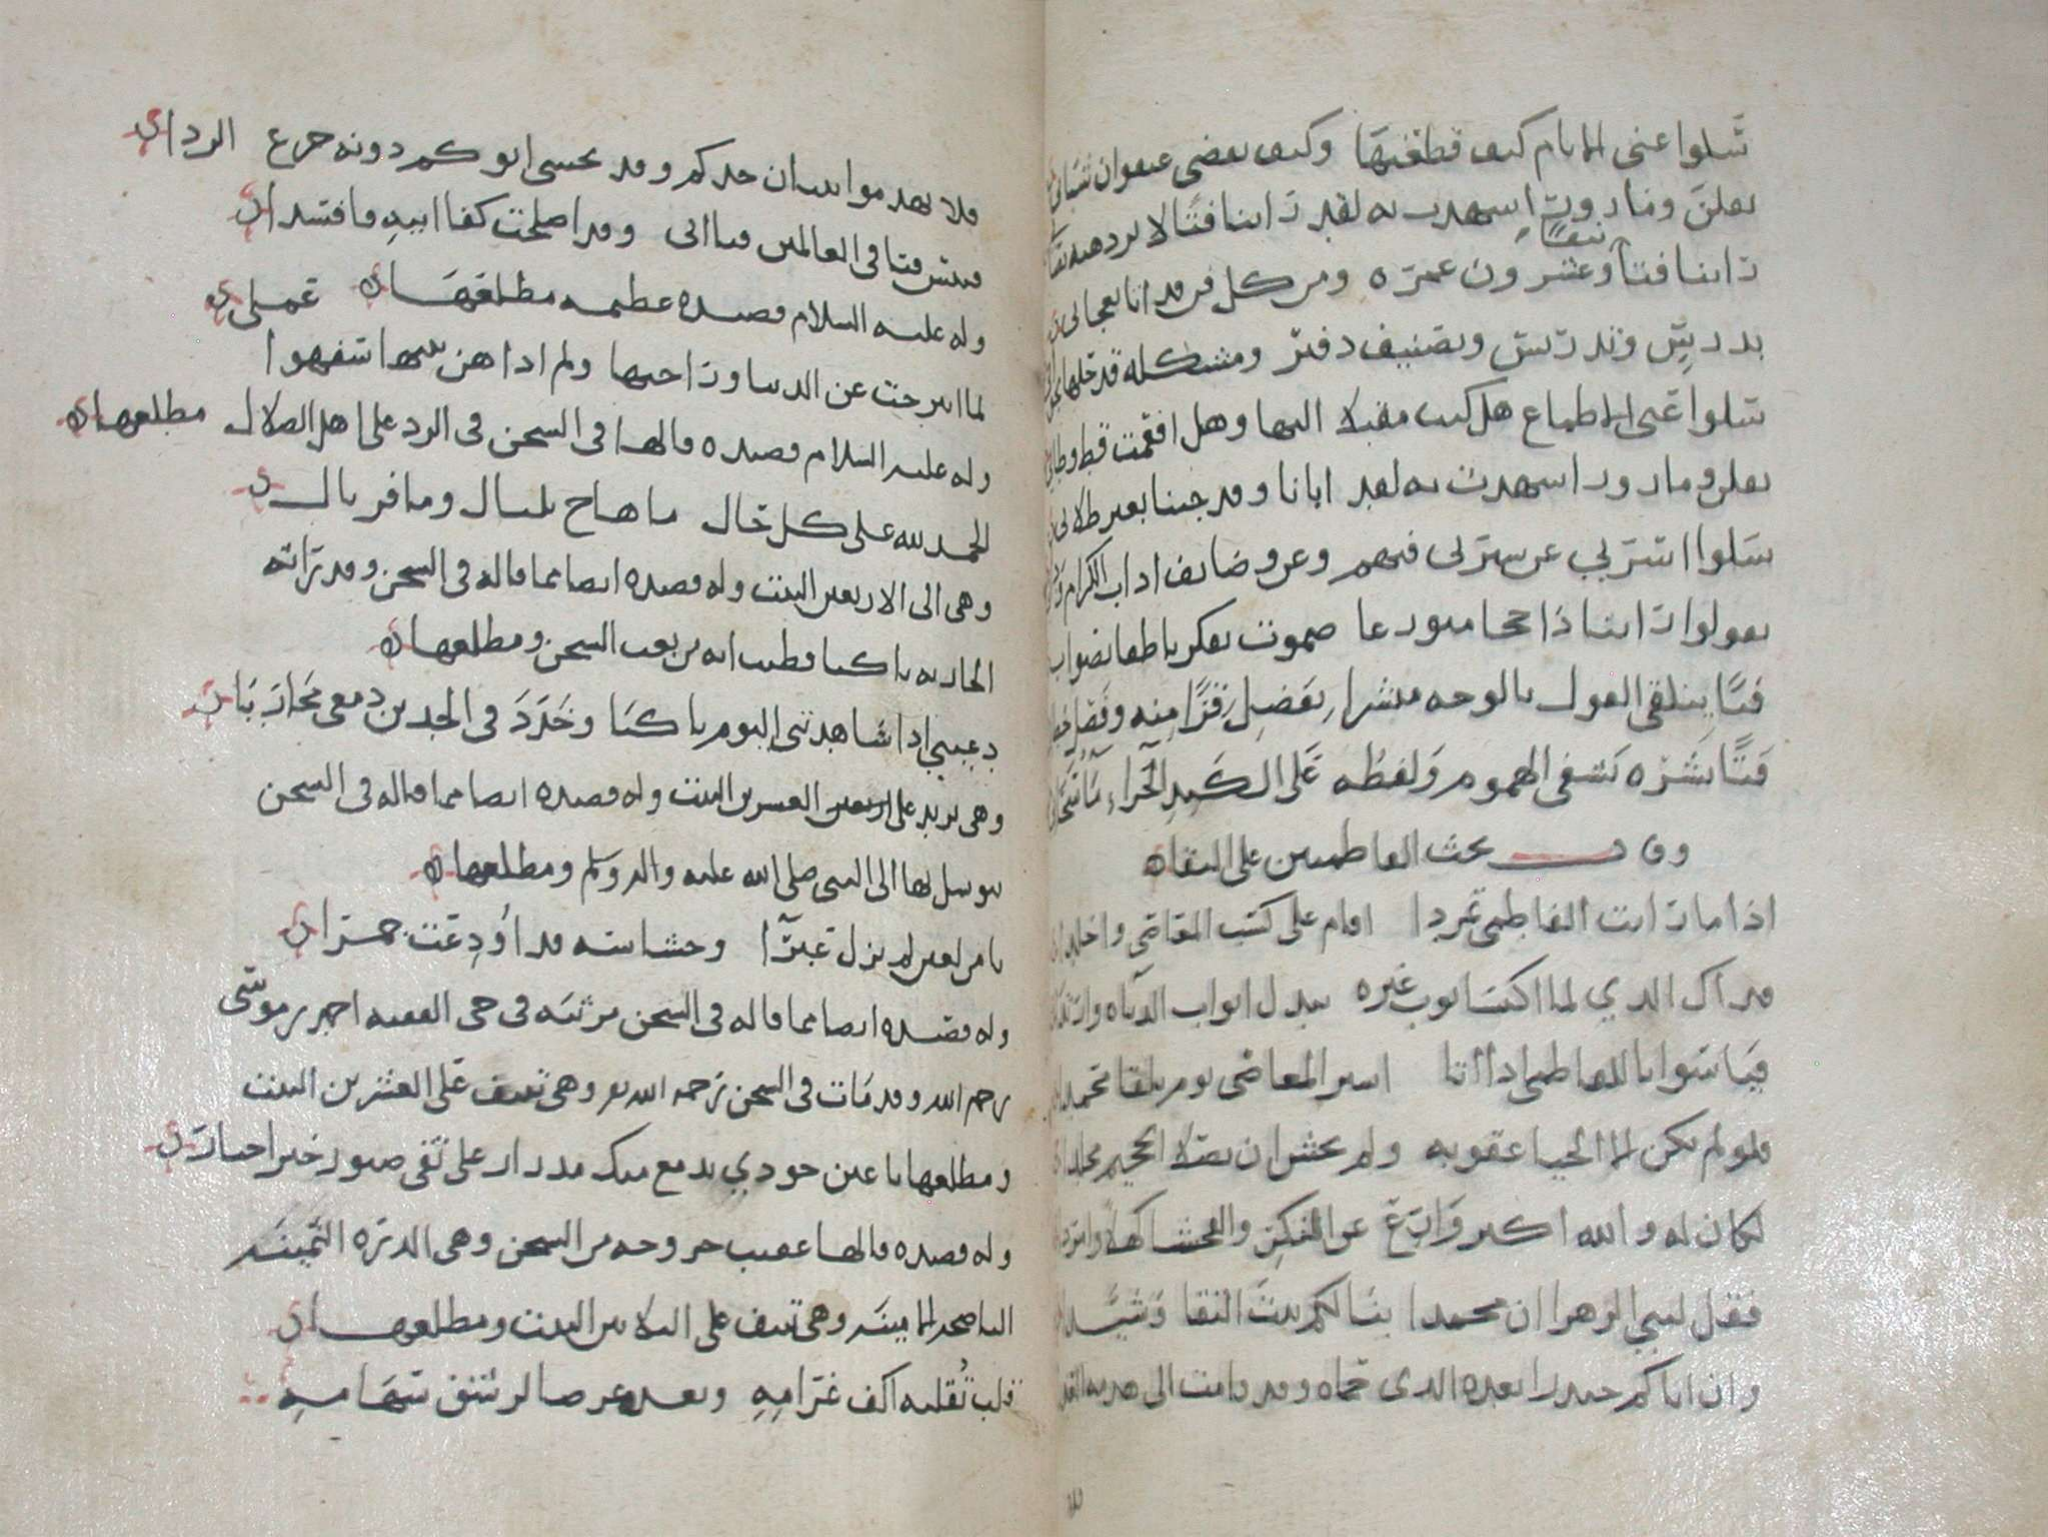 سلوا عني الايام كيف قطعتها وكيف تقضى عنفوان شبابي
يقلن وما زورن اشهدن به لقد راينا فتا لا يزدهيه
راينا فتا نيفا وعشرون عمره ومن كل فن قد اتا بعجاب
بدرس وتدريس وتصنيف دفتر ومشكلة قد حلها
سلوا عني الاطماع هل كنت مقبلا اليها وهل اقحمت قط وطابي
يقلن وما زورا شهدن به لقد ابانا وقد جينا بغير طلاب
سلوا اسرتي عن سيرتي فيهم وعن وضايف اداب الكرام
يقولوا راينا ذا حجا متورعا صموت بفكر ناطقا بصواب
فتا يتلقى القول بالوجه مبشرا بفضل قرا منه وفضل خطاب
فتا بشره تشفي الهموم ولفظه على الكبد الحراء
وقال يحث الفاطميين على التقاه
اذا ما رايت الفاطمي تمردا اقام على كسب المعاصي واخلدا
فذاك الذي لما اكتسا ثوب غيره تبدل اثواب الدناه وارتدا
فيا سوأتا للفاطمي اذا اتا اسير المعاصي يوم يلقا محمدا
فلو لم يكن الا الحيا عقوبه ولم يخش ان يصلا الجحيم مخلدا
لكان له والله اكبر وازع عن النكر والفحشا كهلا وامردا
فقل لبني الزهرا ان محمدا بنا لكم بيت التقا وشيدا
وان اباكم حيدرا بعده الذي حماه وقد قامت الى هدمه العدا
فلا تهدموا بنيان جدكم وقد تحسى ابوكم دونه جرع الردا
فبيس فتا في العالمين فتا اتى وقد اصلحت كفا ابيه فافسدا
وله عليه السلام قصيده عظيمه مطلعها
لما انزجرت عن الدنيا وزاحمها ولم اداهن بنيها شفهوا عملي
وله عليه السلام قصيده قالها في السجن في الرد على اهل الضلال مطلعها
الحمد لله على كل حال ما هاج بلبال وما قر بال
وهي الى الاربعين البيت وله قصيده ايضا مما قاله في السجن وقد راته
الجاريه باكيا فطيب انه من تعب السجن ومطلعها
دعيني اذا شاهدتني اليوم باكيا وخدد في الخدين دمعي مجاريا
وهي تزيد على العشرين البيت وله قصيده ايضا مما قاله في السجن
يتوسل بها الى النبي صلى الله عليه واله وسلم ومطلعها
يا من لعين لم يزل عبرا وحشاشه قد اودعت جمرا
وله قصيده ايضا مما قاله في السجن مرثيه في حي الفقيه احمد بن موسى
رحمه الله وقد مات في السجن رحمه الله تع وهي تنيف على العشرين البيت
ومطلعها يا عين جودي بدمع منك مدرار على تقي صبور خير احبار
وله قصيده قالها عقيب خروجه من السجن وهي الدره الثمينه
الناصحه الامينه وهي تنيف على الثلاثين البيت ومطلعها
قلب تقلبه اكف غرامه وتعده غرضا لرشق سهامه